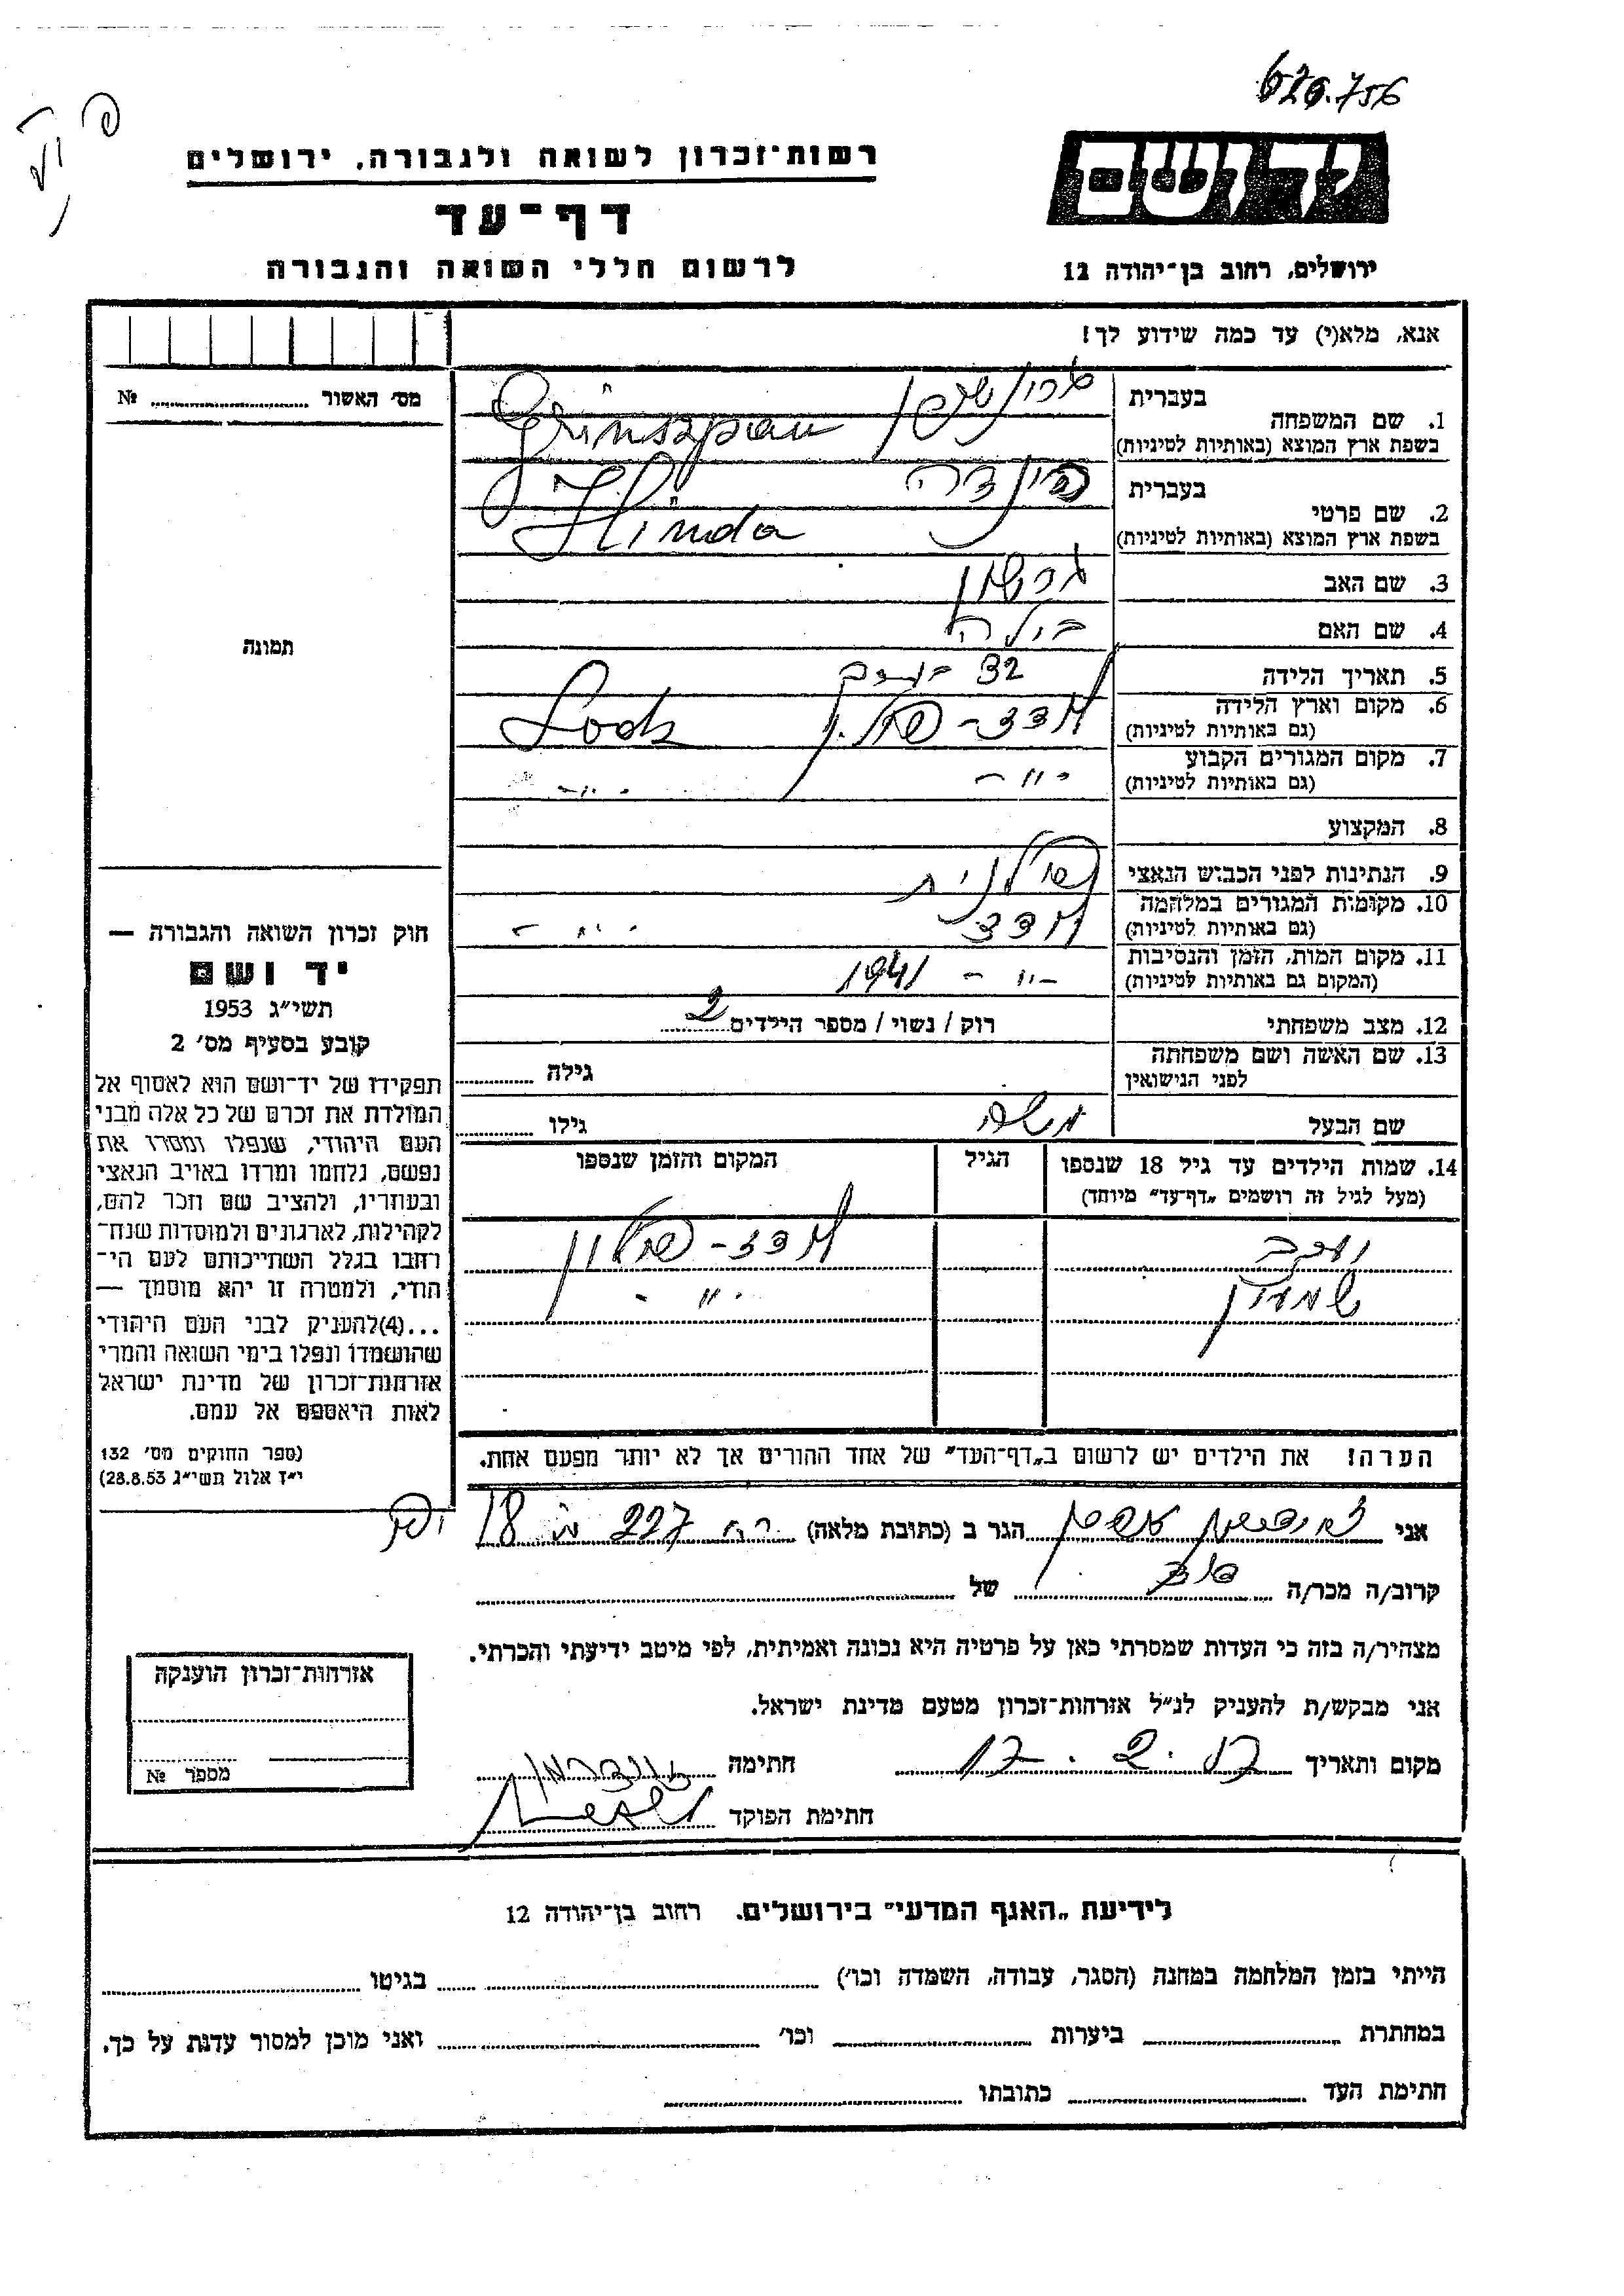 626.756
רשות־זכרון לשואה ולגבורה, ירושלים
יד ושם
דף־עד
לרשום חללי השואה והגבורה
ירושלים, רחוב בן־יהודה 12
אנא, מלא(י) עד כמה שידוע לך!
מס׳ האשור № 
בעברית גרינשפן
1. שם המשפחה
בשפת ארץ המוצא (באותיות לטיניות) Grinszpan
בעברית הינדה
2. שם פרטי
בשפת ארץ המוצא (באותיות לטיניות) Hinda
3. שם האב גרשון
4. שם האם בילה
תמונה
5. תאריך הלידה 32
6. מקום וארץ הלידה לודז- פולין Lodz
(גם באותיות לטיניות)
7. מקום המגורים הקבוע -״-  -״-
(גם באותיות לטיניות)
8. המקצוע
9. הנתינות לפני הכבוש הנאצי פולנית
10. מקומות המגורים במלחמה לודז -״-
(גם באותיות לטיניות)
11. מקום המות, הזמן והנסיבות -״- 1941
(המקום גם באותיות לטיניות)
12. מצב משפחתי רוק / נשוי / מספר הילדים 2
13. שם האשה ושם משפחתה
לפני הנישואין גילה
שם הבעל משה גילו
14. שמות הילדים עד גיל 18 שנספו הגיל המקום והזמן שנספו
(מעל לגיל זה רושמים „דף־עד״ מיוחד)
יעקב לודז- פולין
שמעון -״-
הערה! את הילדים יש לרשום ב„דף־העד״ של אחד ההורים אך לא יותר מפעם אחת.
חוק זכרון השואה והגבורה —
יד ושם
תשי״ג 1953
קובע בסעיף מס׳ 2
תפקידו של יד־ושם הוא לאסוף אל
המולדת את זכרם של כל אלה מבני
העם היהודי, שנפלו ומסרו את
נפשם, נלחמו ומרדו באויב הנאצי
ובעוזריו, ולהציב שם וזכר להם,
לקהילות, לארגונים ולמוסדות שנח־
רחבו בגלל השתייכותם לעם הי־
הודי, ולמטרה זו יהא מוסמך —
...(4)להעניק לבני העם היהודי
שהושמדו ונפלו בימי השואה והמרי
אזרחות־זכרון של מדינת ישראל
לאות היאספם אל עמם.
(ספר החוקים מס׳ 132
י״ז אלול תשי״ג 28.8.53)
אני הגר ב (כתובת מלאה) רח 227 18 יפו
קרוב/ה מכר/ה של
מצהיר/ה בזה כי העדות שמסרתי כאן על פרטיה היא נכונה ואמיתית, לפי מיטב ידיעתי והכרתי.
אני מבקש/ת להעניק לנ״ל אזרחות־זכרון מטעם מדינת ישראל.
מקום ותאריך חתימה
חתימת הפוקד
אזרחות־זכרון הוענקה
מספר №
לידיעת „האגף המדעי״ בירושלים. רחוב בן־יהודה 12
הייתי בזמן המלחמה במחנה (הסגר, עבודה, השמדה וכו׳) בגיטו
במחתרת ביערות וכו׳ ואני מוכן למסור עדות על כך.
חתימת העד כתובתו